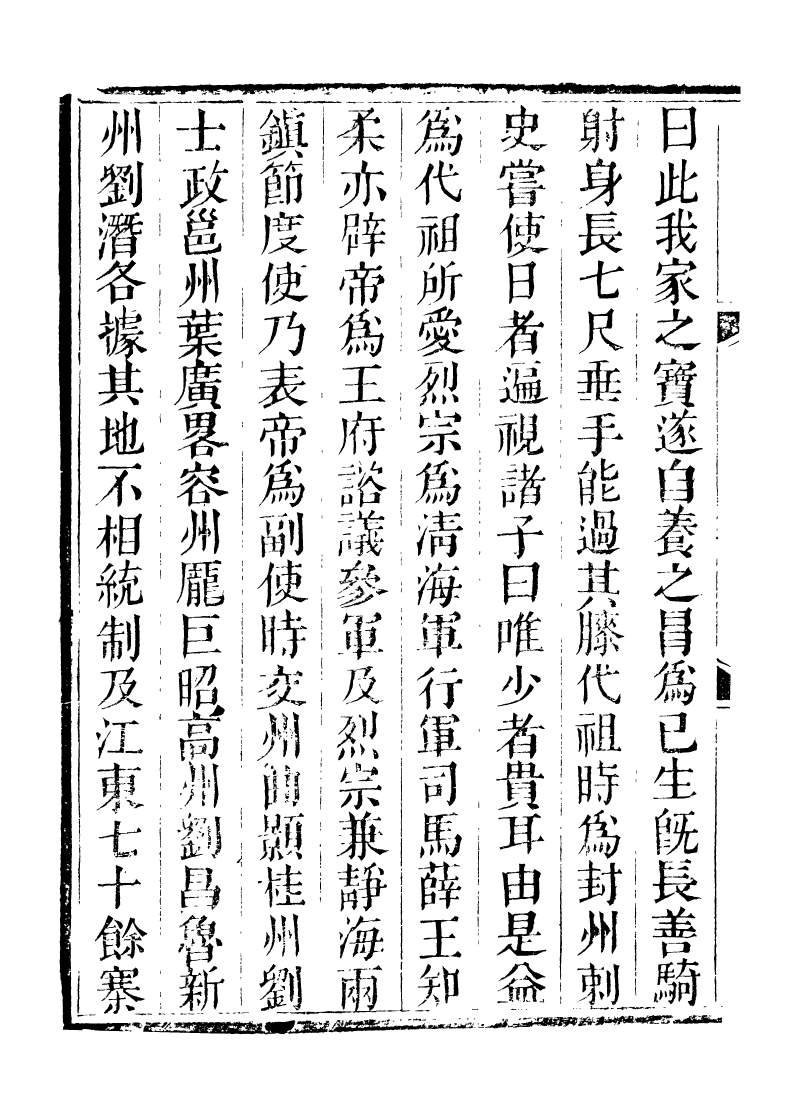 曰此我家之寶遂自養之昌爲已生旣長善騎
射身長七尺垂手能過其膝代祖時爲封州刺
史嘗使日者遍視諸子曰唯少者貴耳由是益
爲代祖所愛烈宗爲淸海軍行軍司馬薛王知
柔亦辟帝爲王府諮議參軍及烈宗兼靜海兩
鎭節度使乃表帝爲副使時交州曲顥桂州劉
士政邕州葉廣畧容州龎巨昭高州劉昌魯新
州劉潛各據其地不相統制及江東七十餘寨